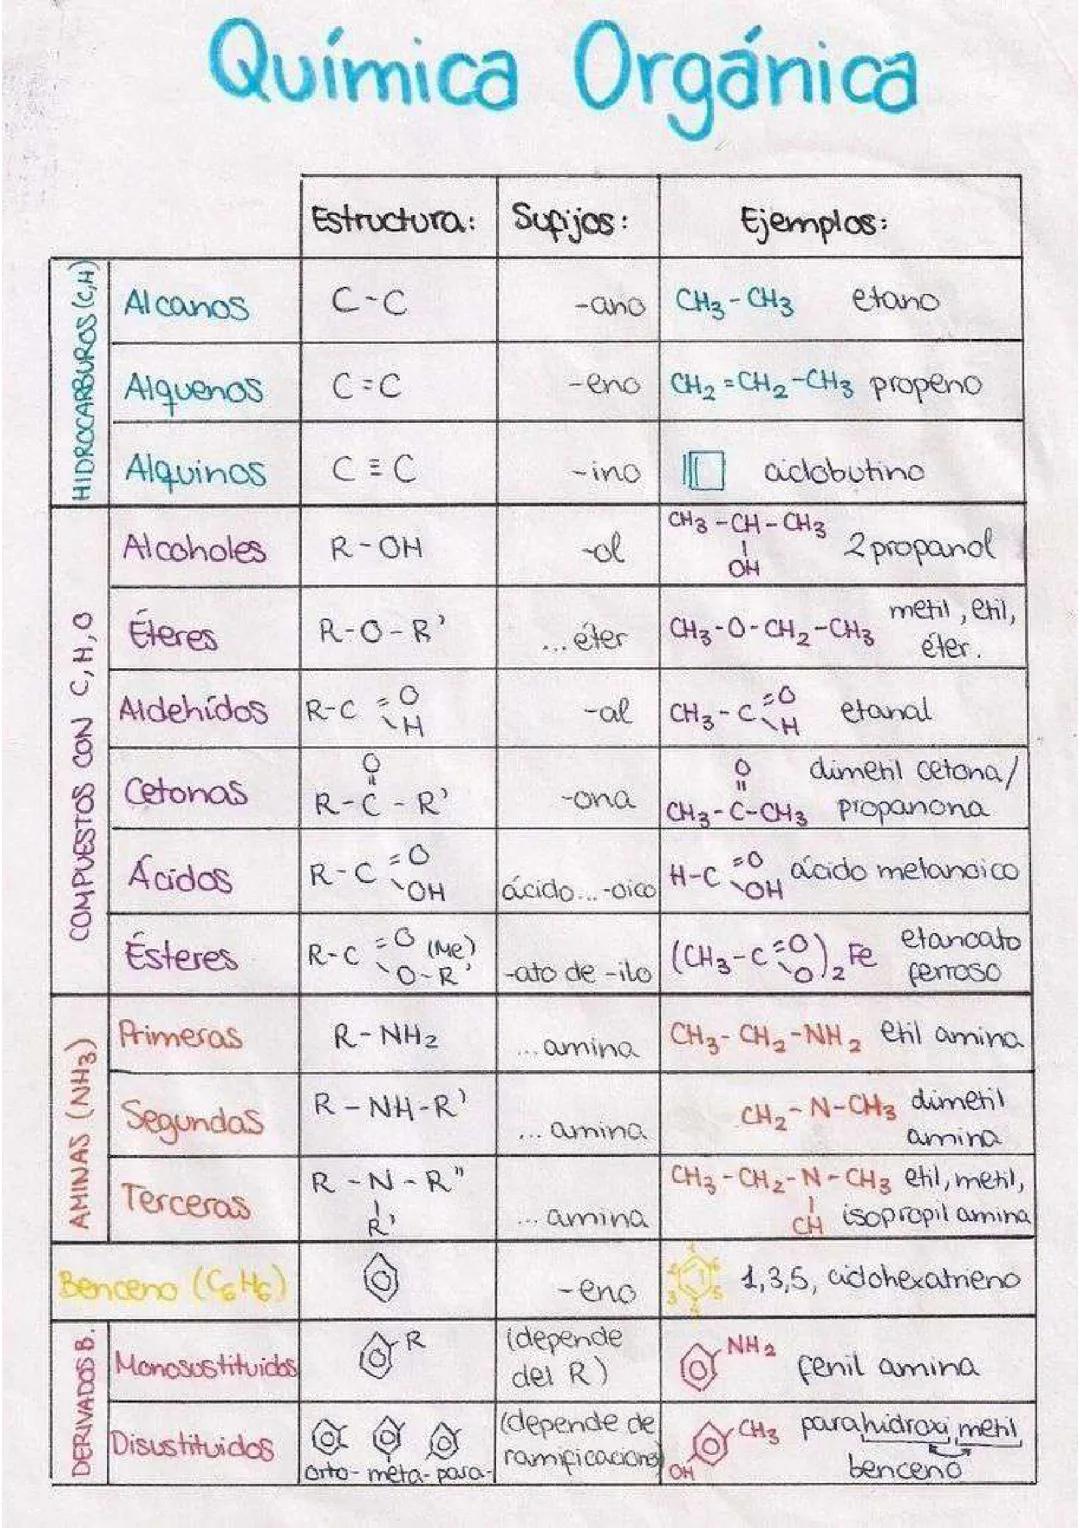 Química Orgánica
Estructura: Sufijos: Ejemplos:
HIDROCARBUROS (C,H)
Alcanos C-C -ano CH3-CH3 etano
Alquenos C=C -eno CH2=CH2-CH3 propeno
Alquinos C≡C -ino ciclobutino
COMPUESTOS CON C, H, O
Alcoholes R-OH -ol CH3-CH-CH3 2 propanol
OH
Éteres R-O-R' ...éter CH3-O-CH2-CH3 metil, etil,
éter.
Aldehídos R-C =O -al CH3-C =O etanal
\H \H
Cetonas O O dimetil cetona/
R-C-R' -ona CH3-C-CH3 propanona
Ácidos R-C =O ácido...-oico H-C =O ácido metanoico
\OH \OH
Ésteres R-C =O (Me) -ato de -ilo (CH3-C =O)2 Fe etanoato
\O-R' \O ferroso
AMINAS (NH3)
Primeras R-NH2 ...amina CH3-CH2-NH2 etil amina
Segundas R-NH-R' ...amina CH2-N-CH3 dimetil
amina
Terceras R-N-R" ...amina CH3-CH2-N-CH3 etil, metil,
R' CH isopropil amina
Benceno (C6H6) -eno 1,3,5, ciclohexatrieno
DERIVADOS B.
Monosustituidos R (depende
del R) NH2 fenil amina
Disustituidos orto- meta- para- (depende de
ramificaciones) CH3 OH parahidroxi metil
benceno